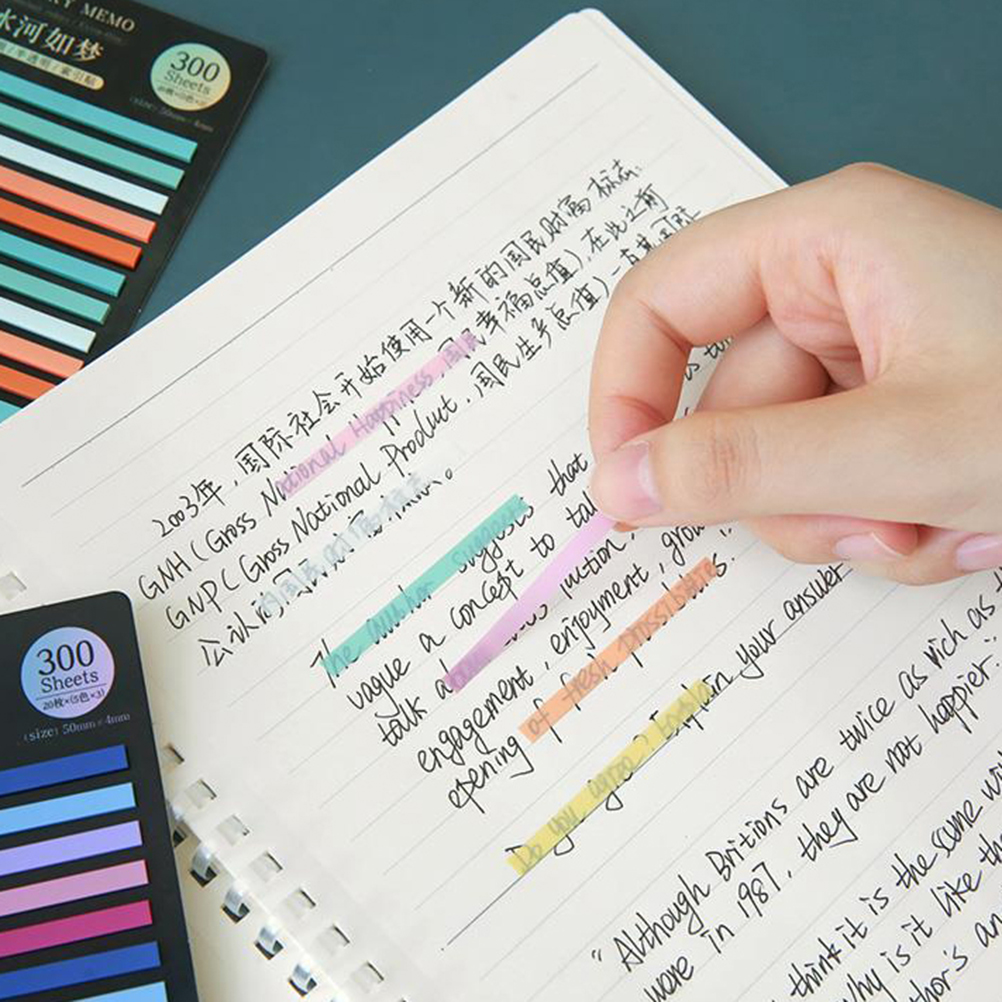 MEMO
冰河如梦
300
Sheets
2003年,国际社会开始使用一个新的国民财富标志.
GNH(Gross National Happiness,国民幸福总值),在此之前
GNP(Gross National Product,国民生产总值)一直是国际
公认的国民财富标志。
The author suggests that
vague a concept to
talk about
junction,
engagement, enjoyment,
opening of fresh possibilities.
Do you agree? Explain your answer
"Although Britions are twice as rich as
were in 1987, they are not happier.
think it is the same
why is it like
300
Sheets
20枚×(5色×3)
(size) 50mm×4mm